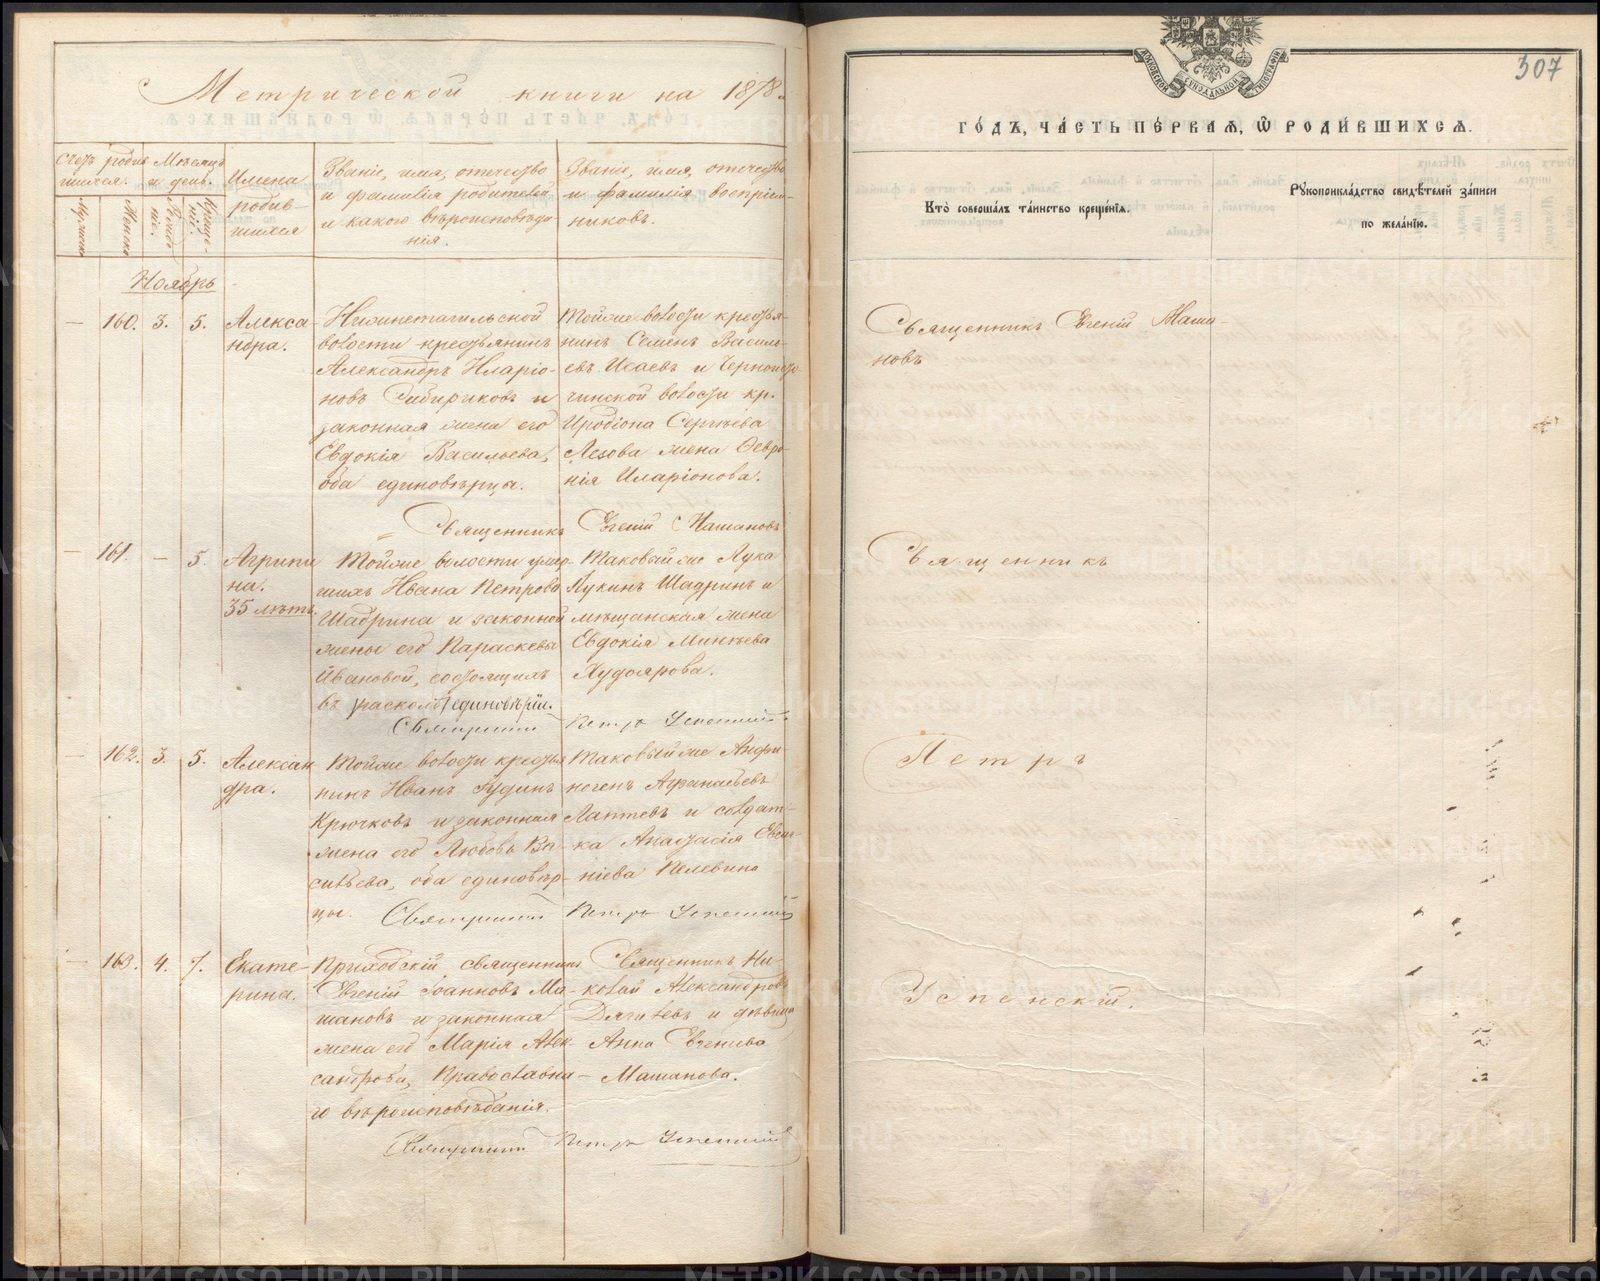 Метрической книги на 1878
Счетъ родив-
шихся.
Мужеска
Женска
Мѣсяцъ
и день.
Рожде-
нія.
Креще-
нія.
Имена
родив-
шихся
Званіе, имя, отчество
и фамилія родителей
и какого вѣроисповѣда-
нія.
Званіе, имя, отчество
и фамилія воспріем-
никовъ.
Ноябрь
— 160. 3. 5.
Алекса-
ндра.
Нижнетагильской
волости крестьянинъ
Александръ Иларіо-
новъ Сибиряковъ и
законная жена его
Евдокія Васильева,
оба единовѣрцы.
Тойже волости крестья-
нинъ Семенъ Василь-
евъ Исаевъ и Черноисто-
чинской волости кр.
Иродіона Сергѣева
Лезова жена Февро-
нія Иларіонова.
Священникъ Евгеній Машановъ
— 161. — 5.
Агрипи
на.
35 лѣтъ.
Тойже волости умер-
шихъ Ивана Петрова
Шадрина и законной
жены его Параскевы
Ивановой, состоящихъ
въ расколѣ единовѣріи.
Таковыйже Лука
Лукинъ Шадринъ и
мѣщанская жена
Евдокія Минѣева
Худоярова.
Священникъ Петръ Успенскій
— 162. 3. 5.
Алексан
дра.
Тойже волости крестья
нинъ Иванъ Іудинъ
Крючковъ и законная
жена его Любовь Ва-
сильева, оба единовѣр-
цы.
Таковыйже Анфи-
ногенъ Афанасьевъ
Лаптевъ и солдат-
ка Анастасія Евси-
гніева Пелевина
Священникъ Петръ Успенскій
— 163. 4. 7.
Екате-
рина.
Приходскій священникъ
Евгеній Іоанновъ Ма-
шановъ и законная
жена его Марія Алек-
сандрова, Православна-
го вѣроисповѣданія.
Священникъ Ни-
колай Александровъ
Дягилевъ и дѣвица
Анна Евгеніева
Машанова.
Священникъ Петръ Успенскій
МОСКОВСКОЙ СѴНОДАЛЬНОЙ ТИПОГРАФІИ
307
ГО́ДЪ, ЧА́СТЬ ПЕ́РВАѦ, Ѿ РОДИ́ВШИХСѦ.
Кто̀ соверша́лъ та́инство креще́нїѧ.
Рꙋкоприкла́дство свидѣ́телей за́писи
по жела́нїю.
Священникъ Евгеній Маша-
новъ
Священникъ
Петръ
Успенскій.
METRIKI.GASO-URAL.RU